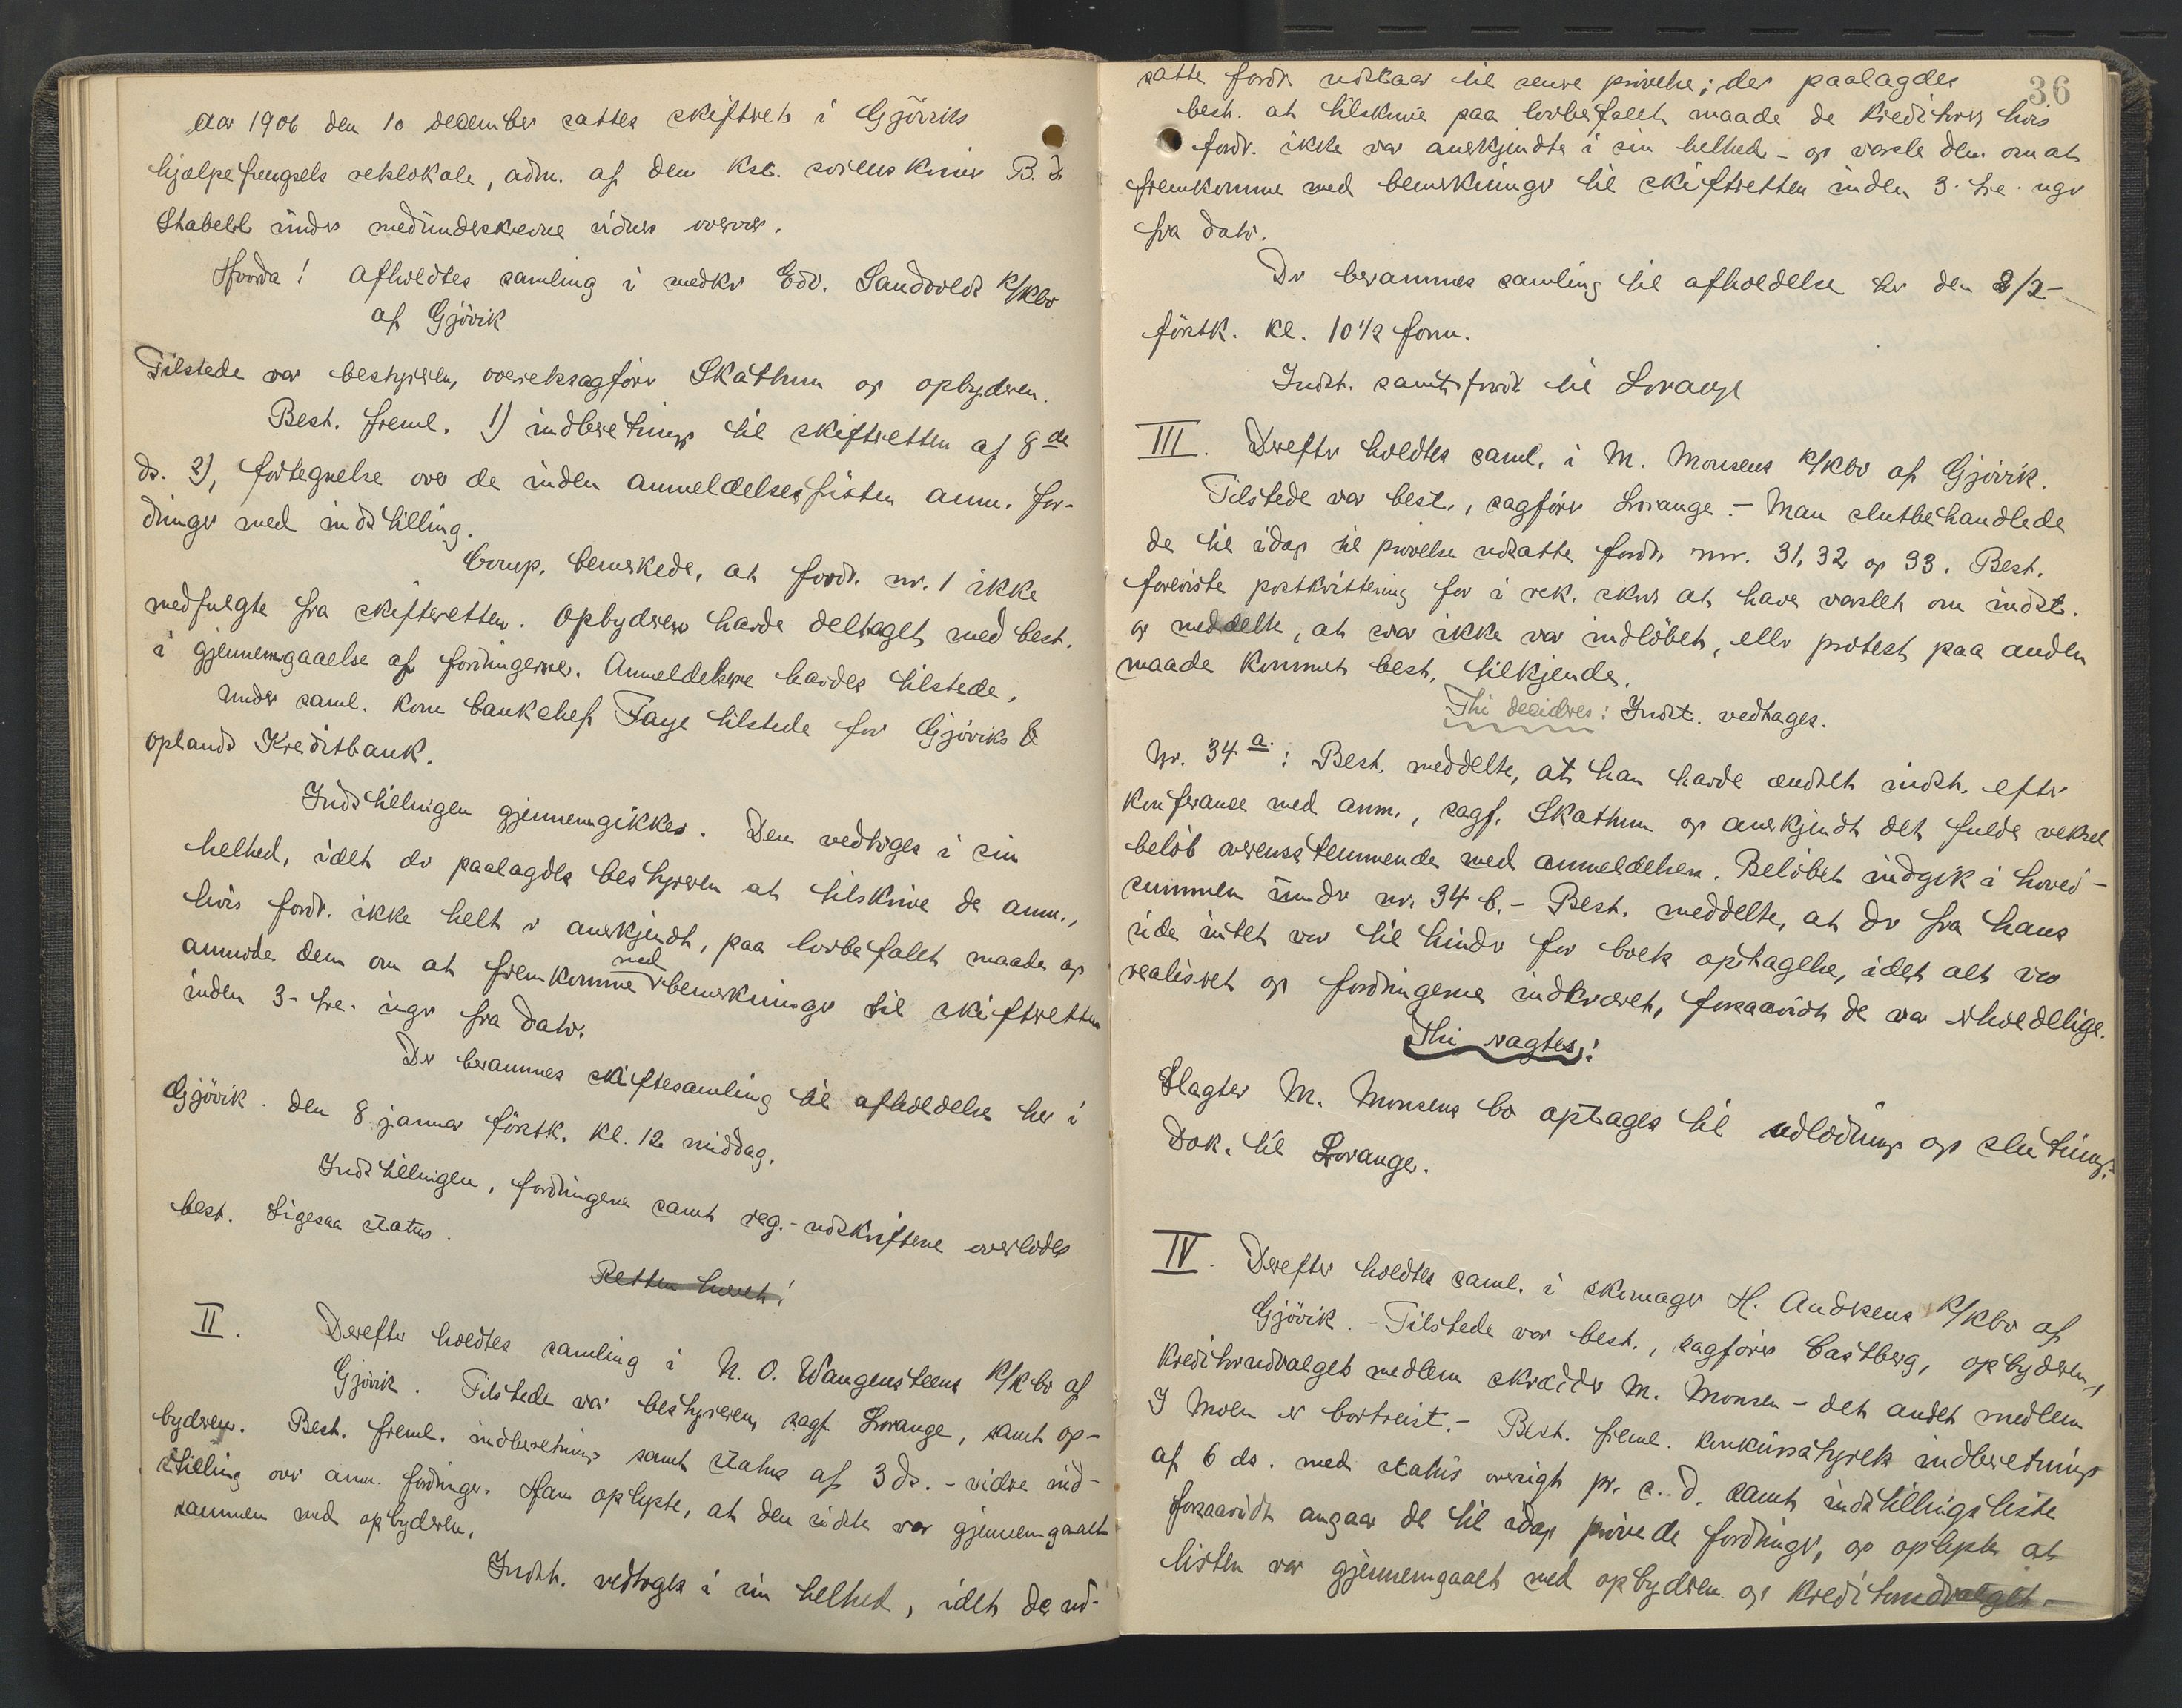 Aar 1906 den 10 december sattes skifteret i Gjöviks
hjælpefengsels retslokale, adm. af den kst. sorenskriver B. D.
Stabell under medunderskrevne vidners overvær.
Hvorda! afholdtes samling i medkr Edv. Sandvolds k/kbo
af Gjövik
Tilstede var bestyreren, overretssagförer Skathum og opbyderen.
Best. freml. 1) indberetning til skifteretten af 8de
ds. 2), fortegnelse over de inden anmeldelsesfristen anm. for-
dringer med indstilling.
Comp. bemerkede, at fordr. nr. 1 ikke
medfulgte fra skifteretten. Opbyderen havde deltaget med best.
i gjennemgaaelse af fordringerne. Anmeldelserne havdes tilstede,
under saml. kom bankchef Faye tilstede for Gjöviks &
oplands Kreditbank.
Indstillingen gjennemgikkes. Den vedtoges i sin
helhed, idet der paalagdes bestyreren at tilskrive de anm.,
hvis fordr. ikke helt er anerkjendt, paa lovbefalet maade og
anmode dem om at fremkomme med bemerkninger til skifteretten
inden 3-tre-uger fra dato.
Der berammes skiftesamling til afholdelse her i
Gjövik den 8 januar förstk. kl. 12 middag.
Indstillingen, fordringerne samt reg.-udskriftene overlodes
best. Ligesaa status.
Retten hævet!
II. Derefter holdtes samling i N. O. Wangensteens k/kbo af
Gjövik. Tilstede var bestyreren, sagf. Lorange, samt op-
byderen. Best. freml. indberetning samt status af 3 ds. - videre ind-
stilling over anm. fordringer. Han oplyste, at den sidste var gjennemgaaet
sammen med opbyderen.
Indst. vedtoges i sin helhed, idet de ud-
36
satte fordr. udstaar til senere prövelse; der paalagdes
best. at tilskrive paa lovbefalet maade de kreditorer hvis
fordr. ikke var anerkjendte i sin helhed - og varsle dem om at
fremkomme med bemerkninger til skifteretten inden 3-tre-uger
fra dato.
Der berammes samling til afholdelse her den 8/2-
förstk. kl. 10 1/2 form.
Indst. samt fordr til Lorange
III. Derefter holdtes saml. i M. Monsens k/kbo af Gjövik.
Tilstede var best., sagförer Lorange. - Man slutbehandlede
de til idag til prövelse udsatte fordr. nr. 31, 32 og 33. Best.
foreviste postkvittering for i rek. skriv at have varslet om indst.
og meddelte, at svar ikke var indlöbet, eller protest paa anden
maade kommet best. tilkjende.
Thi decideres: Indst. vedtages.
Nr. 34 a: Best. meddelte, at han havde ændret indst. efter
konferance med anm., sagf. Skathum og anerkjendt det fulde veksel
belöb overensstemmende med anmeldelsen. Belöbet indgik i hoved-
summen under nr. 34 b. - Best. meddelte, at der fra hans
side intet var til hinder for boets optagelse, idet alt var
realiseret og fordringerne indkrævet, forsaavidt de var erholdelige.
Thi ragtes:
Slagter M. Monsens bo optages til udlodning og slutning.
Dok. til Lorange.
IV. Derefter holdtes saml. i skomager H. Andresens k/kbo af
Gjövik. - Tilstede var best., sagförer Castberg, opbyderen,
kreditorudvalgets medlem skræder M. Monsen - det andet medlem
I Moen er bortreist. - Best. freml. konkursstyrets indberetning
af 6 ds. med status oversigt pr. s. d. samt indstillingsliste
forsaavidt angaar de til idag prövede fordringer, og oplyste at
listen var gjennemgaaet med opbyderen og kreditorudvalget.-